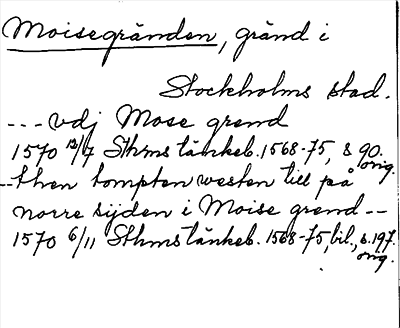 Moisegränden, gränd i
Stockholms stad.
--- vdj Mose grend
1570 12/7 Sthms tänkeb. 1568-75, s 90. orig.
-- then tompten westen till på
norre sijden i Moise grend --
1570 6/11 Sthms tänkeb. 1568-75, bil., s. 197. orig.